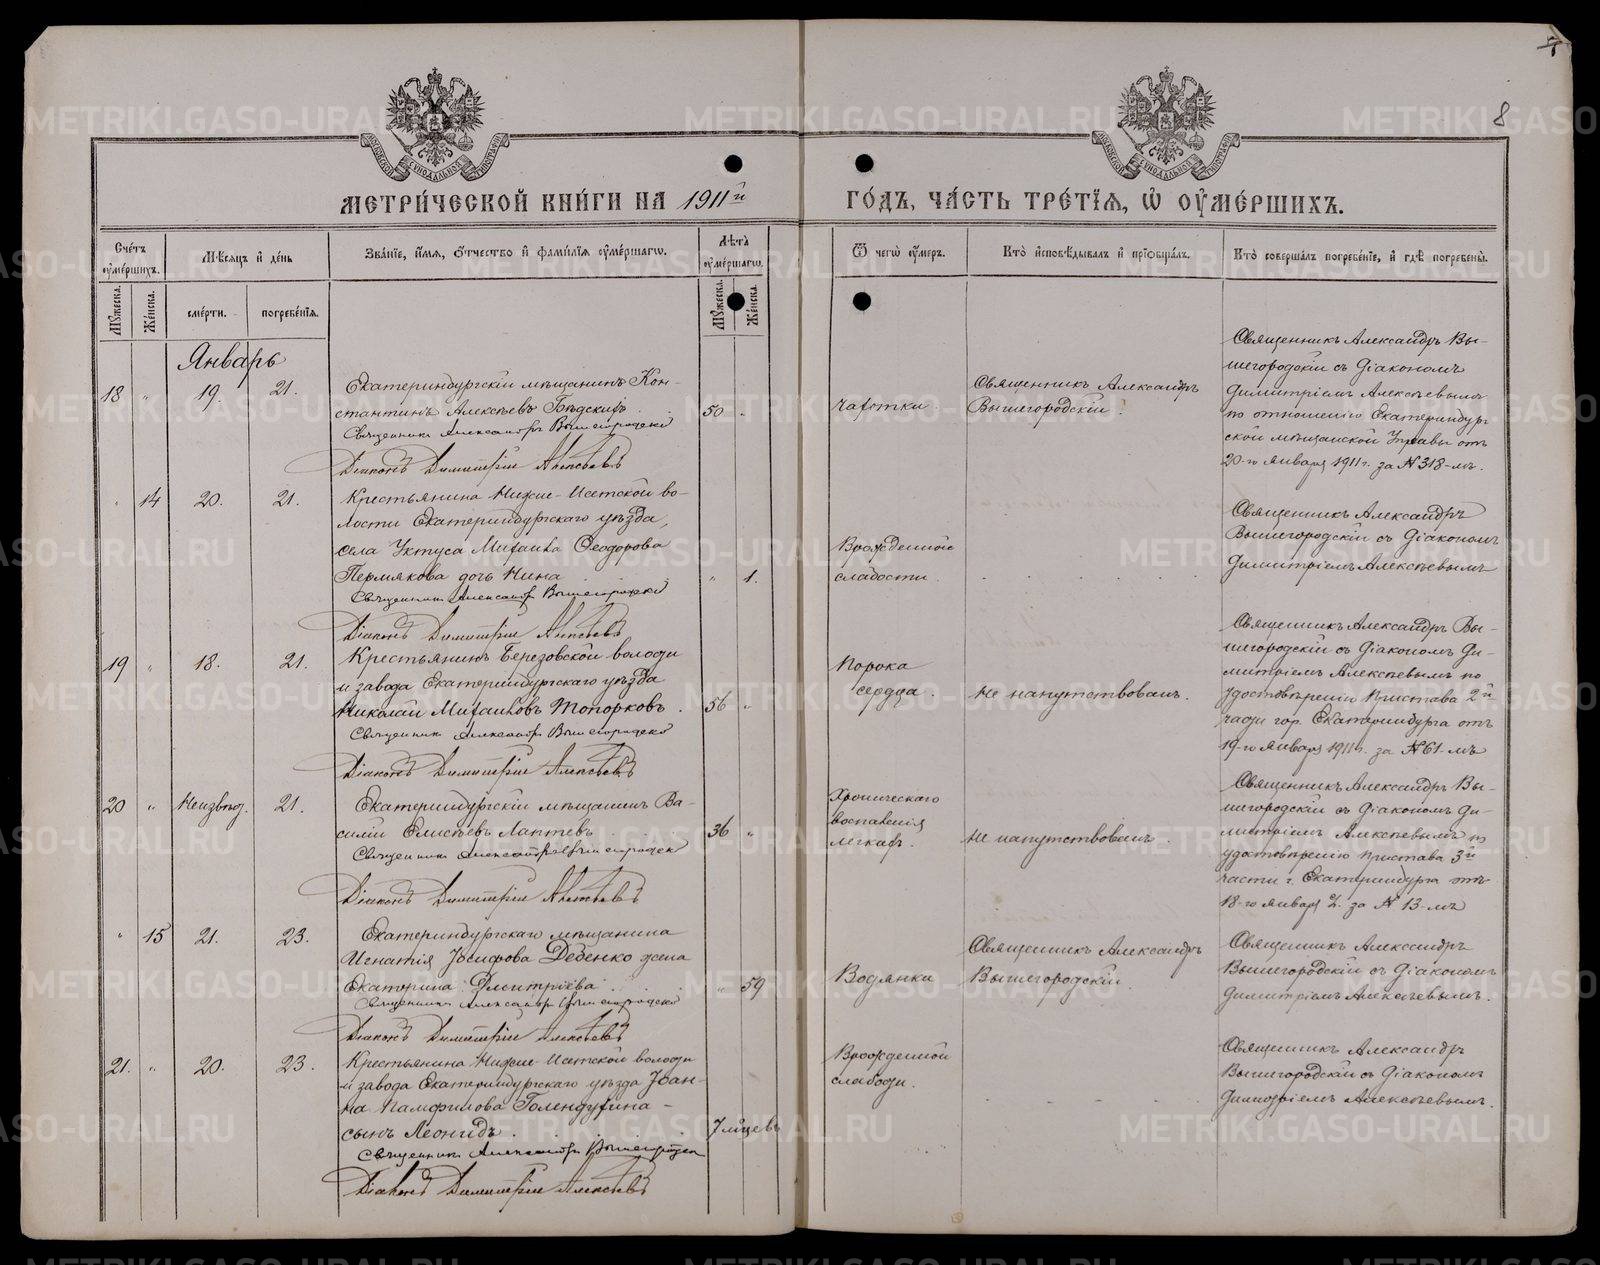 8
МЕТРИ́ЧЕСКОЙ КНИ́ГИ НА 1911й ГО́ДЪ, ЧА́СТЬ ТРЕ́ТІЯ, Ѡ ОУМЕ́РШИХЪ.
Счетъ оумершихъ.
Мужеска.
Женска.
Мѣсяцъ и день
смерти.
погребенія.
Званіе, имя, отчество и фамилія оумершагω.
Лѣта оумершагω.
Мужеска.
Женска.
Ѿ чегω оумеръ.
Кто исповѣдывалъ и пріобщалъ.
Кто совершалъ погребеніе, и гдѣ погребены.
Январь
18 " 19. 21.
Екатеринбургскій мѣщанинъ Кон-
стантинъ Алексѣевъ
Священникъ Александръ Вышегородскій
Діаконъ Димитрій Алексѣевъ
50 "
Чахотки.
Священникъ Александръ
Вышегородскій.
Священникъ Александръ Вы-
шегородскій съ Діакономъ
Димитріемъ Алексѣевымъ
по отношенію Екатеринбург
ской мѣщанской Управы отъ
20-го Января 1911 г. за № 318-мъ.
" 14 20. 21.
Крестьянина Нижне-Исетской во-
лости Екатеринбургскаго уѣзда,
села Уктуса Михаила Ѳеодорова
Пермякова дочь Нина
Священникъ Александръ Вышегородскій
Діаконъ Димитрій Алексѣевъ
" 1.
Врожденной
слабости.
Священникъ Александръ
Вышегородскій съ Діакономъ
Димитріемъ Алексѣевымъ
19 " 18. 21.
Крестьянинъ Березовской волости
и завода Екатеринбургскаго уѣзда
Николай Михаиловъ Топорковъ.
Священникъ Александръ Вышегородскій
Діаконъ Димитрій Алексѣевъ
56 "
Порока
сердца.
Не напутствованъ.
Священникъ Александръ Вы-
шегородскій съ Діакономъ Ди-
митріемъ Алексѣевымъ по
удостовѣренію Пристава 2й
части гор. Екатеринбурга отъ
19-го Января 1911 г. за № 61-мъ
20 " Неизвѣст. 21.
Екатеринбургскій мѣщанинъ Ва-
силій Елисѣевъ Лаптевъ
Священникъ Александръ Вышегородскій
Діаконъ Димитрій Алексѣевъ
36 "
Хроническаго
воспаленія
легкихъ.
Не напутствованъ.
Священникъ Александръ Вы-
шегородскій съ Діакономъ Ди-
митріемъ Алексѣевымъ по
удостовѣренію Пристава 3й
части г. Екатеринбурга отъ
18-го Января с/г. за № 13-мъ
" 15 21. 23.
Екатеринбургскаго мѣщанина
Игнатія Іосифова Дебенко жена
Екатерина Димитріева
Священникъ Александръ Вышегородскій
Діаконъ Димитрій Алексѣевъ
" 59
Водянки
Священникъ Александръ
Вышегородскій.
Священникъ Александръ
Вышегородскій съ Діакономъ
Димитріемъ Алексѣевымъ.
21. " 20. 23.
Крестьянина Нижне-Исетской волости
и завода Екатеринбургскаго уѣзда Іоан-
на Памфилова Голендухина
сынъ Леонидъ
Священникъ Александръ Вышегородскій
Діаконъ Димитрій Алексѣевъ
7 м[ѣ]цевъ
Врожденной
слабости.
Священникъ Александръ
Вышегородскій съ Діакономъ
Димитріемъ Алексѣевымъ.
METRIKI.GASO-URAL.RU